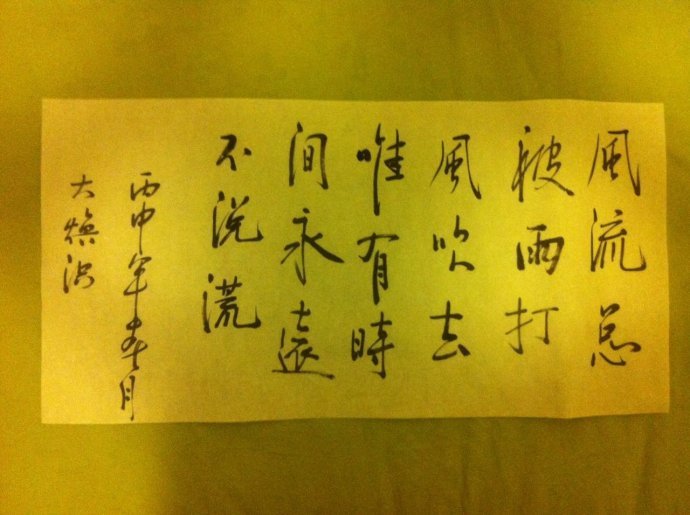 風流总
被雨打
風吹去
唯有時
间永遠
不说谎
丙申年春月
大